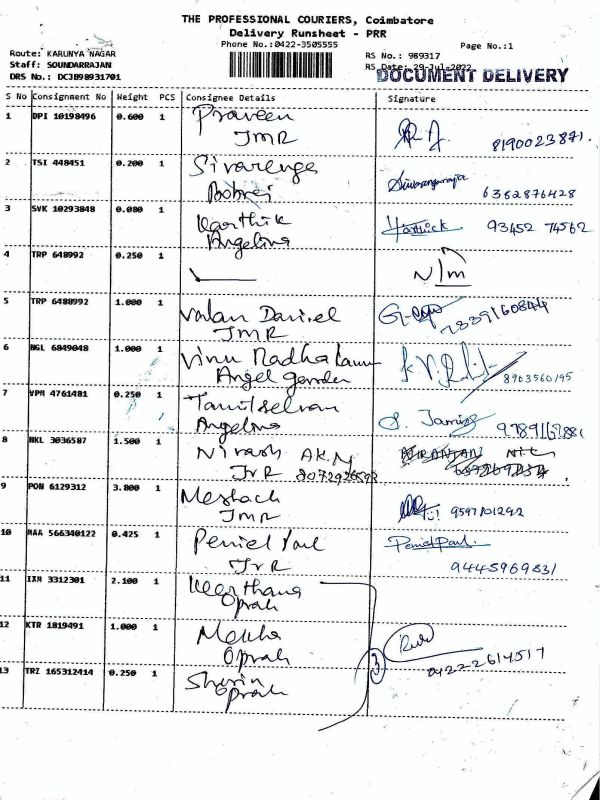 THE PROFESSIONAL COURIERS, Coimbatore
Delivery Runsheet - PRR
Phone No.:0422-3505555 Page No.:1
Route: KARUNYA NAGAR RS No.: 989317
Staff: SOUNDARRAJAN RS Date: 29-Jul-2022
DRS No.: DCJB98931701 DOCUMENT DELIVERY
S No Consignment No Weight PCS Consignee Details Signature
1 DPI 10198496 0.600 1 Praveen
JMR 8190023871.
2 TSI 448451 0.200 1 Sivarenga
6382876428
3 SVK 10293848 0.080 1 Karthik Karthick 93452 74562
Angelina
4 TRP 648992 0.250 1 N/m
5 TRP 6488992 1.000 1 Valan Daniel
JMR 7839160844
6 NGL 6849048 1.000 1 Vinu
Angel garden 8903560195
7 VPM 4761481 0.250 1 Tamilselvan
Angelina
8 NKL 3036587 1.500 1 Nirash AK.M
JrR
9 PON 6129312 3.800 1 Meshach
JMR 9597101292
10 MAA 566340122 0.425 1 Peniel Paul Peniel Paul.
JrR 9445969831
11 IXM 3312301 2.100 1 Keerthana
Oprah
12 KTR 1819491 1.000 1
Oprah 3 04222614517
13 TRZ 165312414 0.250 1 Sherin
Oprah